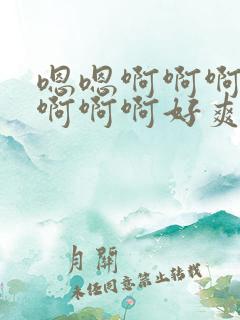 嗯嗯啊啊啊
啊啊啊好爽
月關
未经同意禁止转载